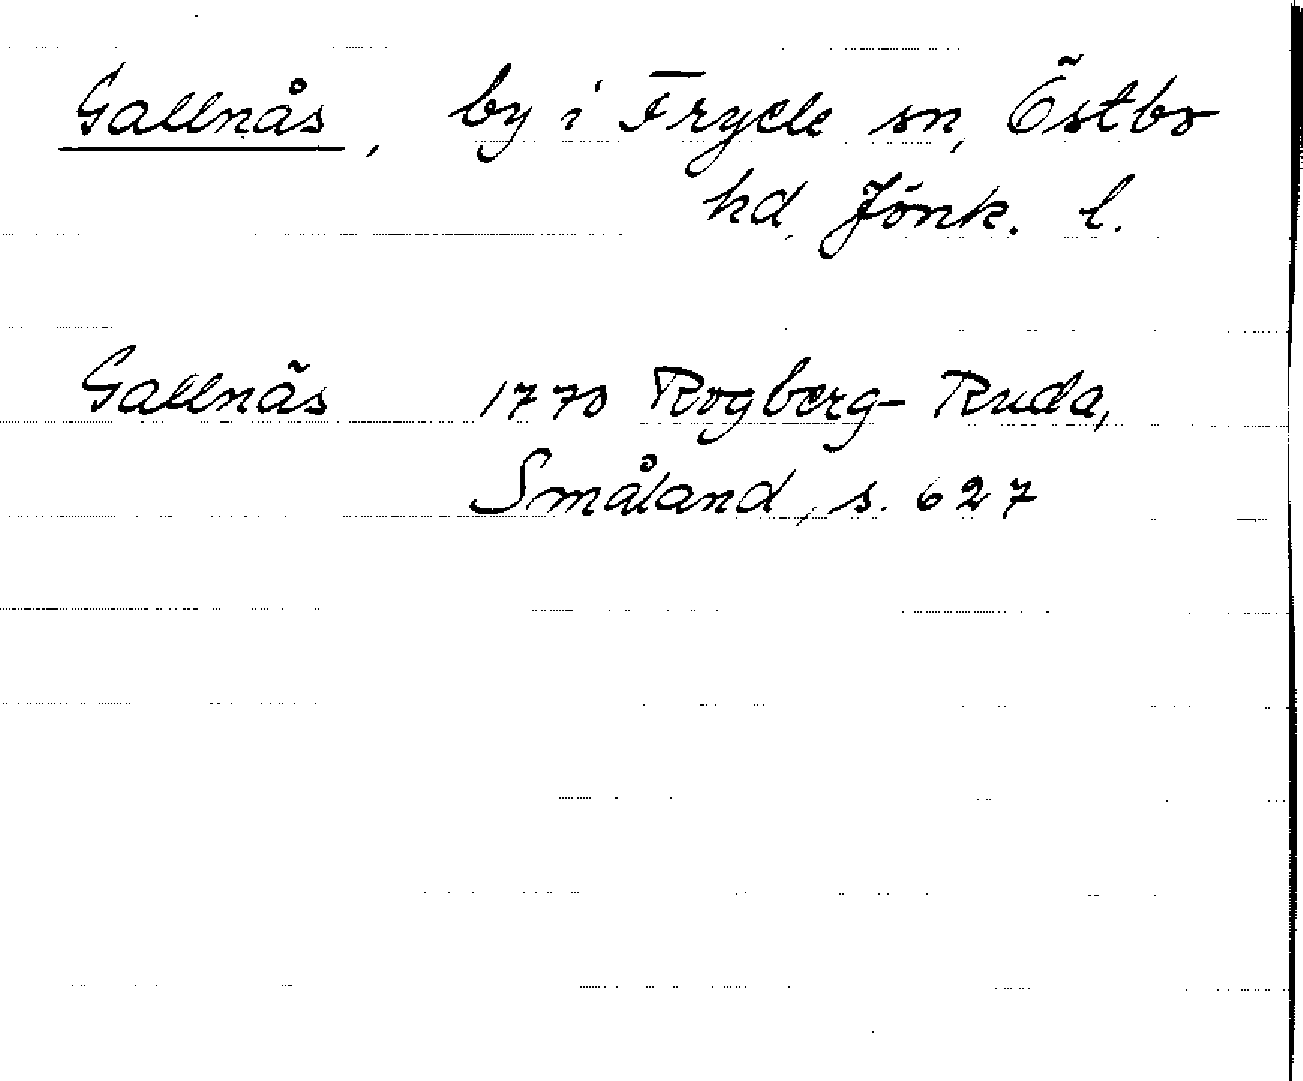 Gallnås, by i Fryele sn, Östbo
hd, Jönk. l.
Gallnäs 1770 Rogberg-Ruda,
Småland, s. 627